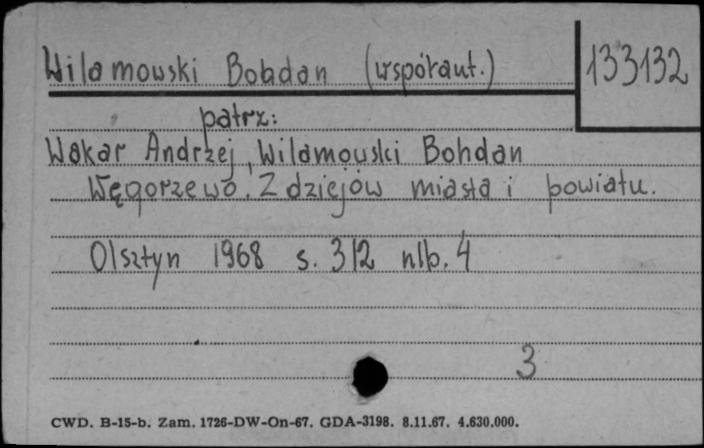 Wilamowski Bohdan (współaut.) 133132
patrz:
Wakar Andrzej, Wilamowski Bohdan
Węgorzewo. Z dziejów miasta i powiatu.
Olsztyn 1968 s. 312 nlb. 4
3
CWD. B-15-b. Zam. 1726-DW-On-67. GDA-3198. 8.11.67. 4.630.000.